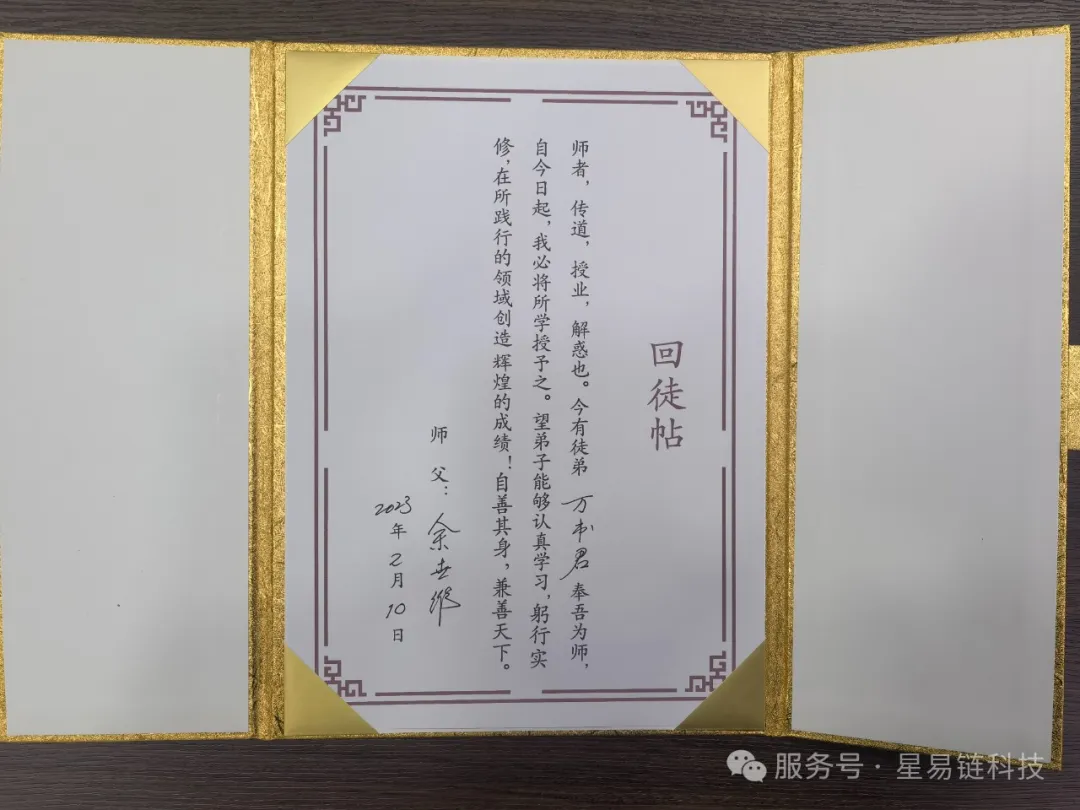 回徒帖
师者，传道，授业，解惑也。今有徒弟 万书君 奉吾为师，
自今日起，我必将所学授予之。望弟子能够认真学习，躬行实
修，在所践行的领域创造辉煌的成绩！自善其身，兼善天下。
师父：余世维
2023年2月10日
服务号 · 星易链科技